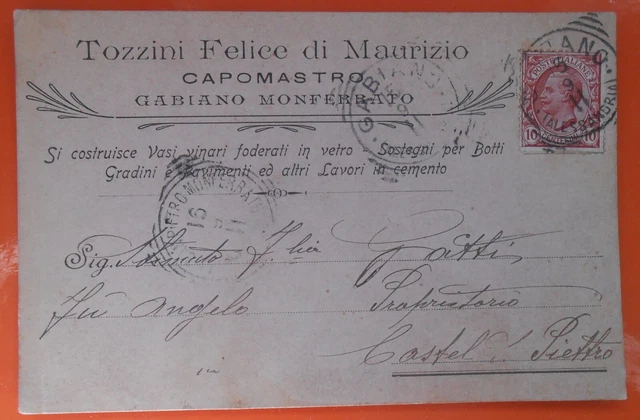 Tozzini Felice di Maurizio
CAPOMASTRO
GABIANO MONFERRATO
POSTE ITALIANE
10 10
GABIANO
GABIANO
Si costruisce Vasi vinari foderati in vetro - Sostegni per Botti
Gradini e Pavimenti ed altri Lavori in cemento
PIETRO MONFERRATO
16
11
Sig. Gatti
Fu Angelo Proprietario
Castel S. Piettro